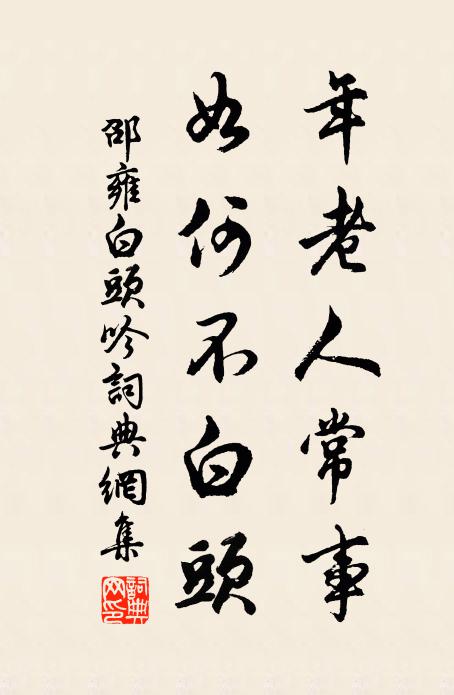 年老人常事
如何不白頭
邵雍白頭吟詞典網集
詞典
网印